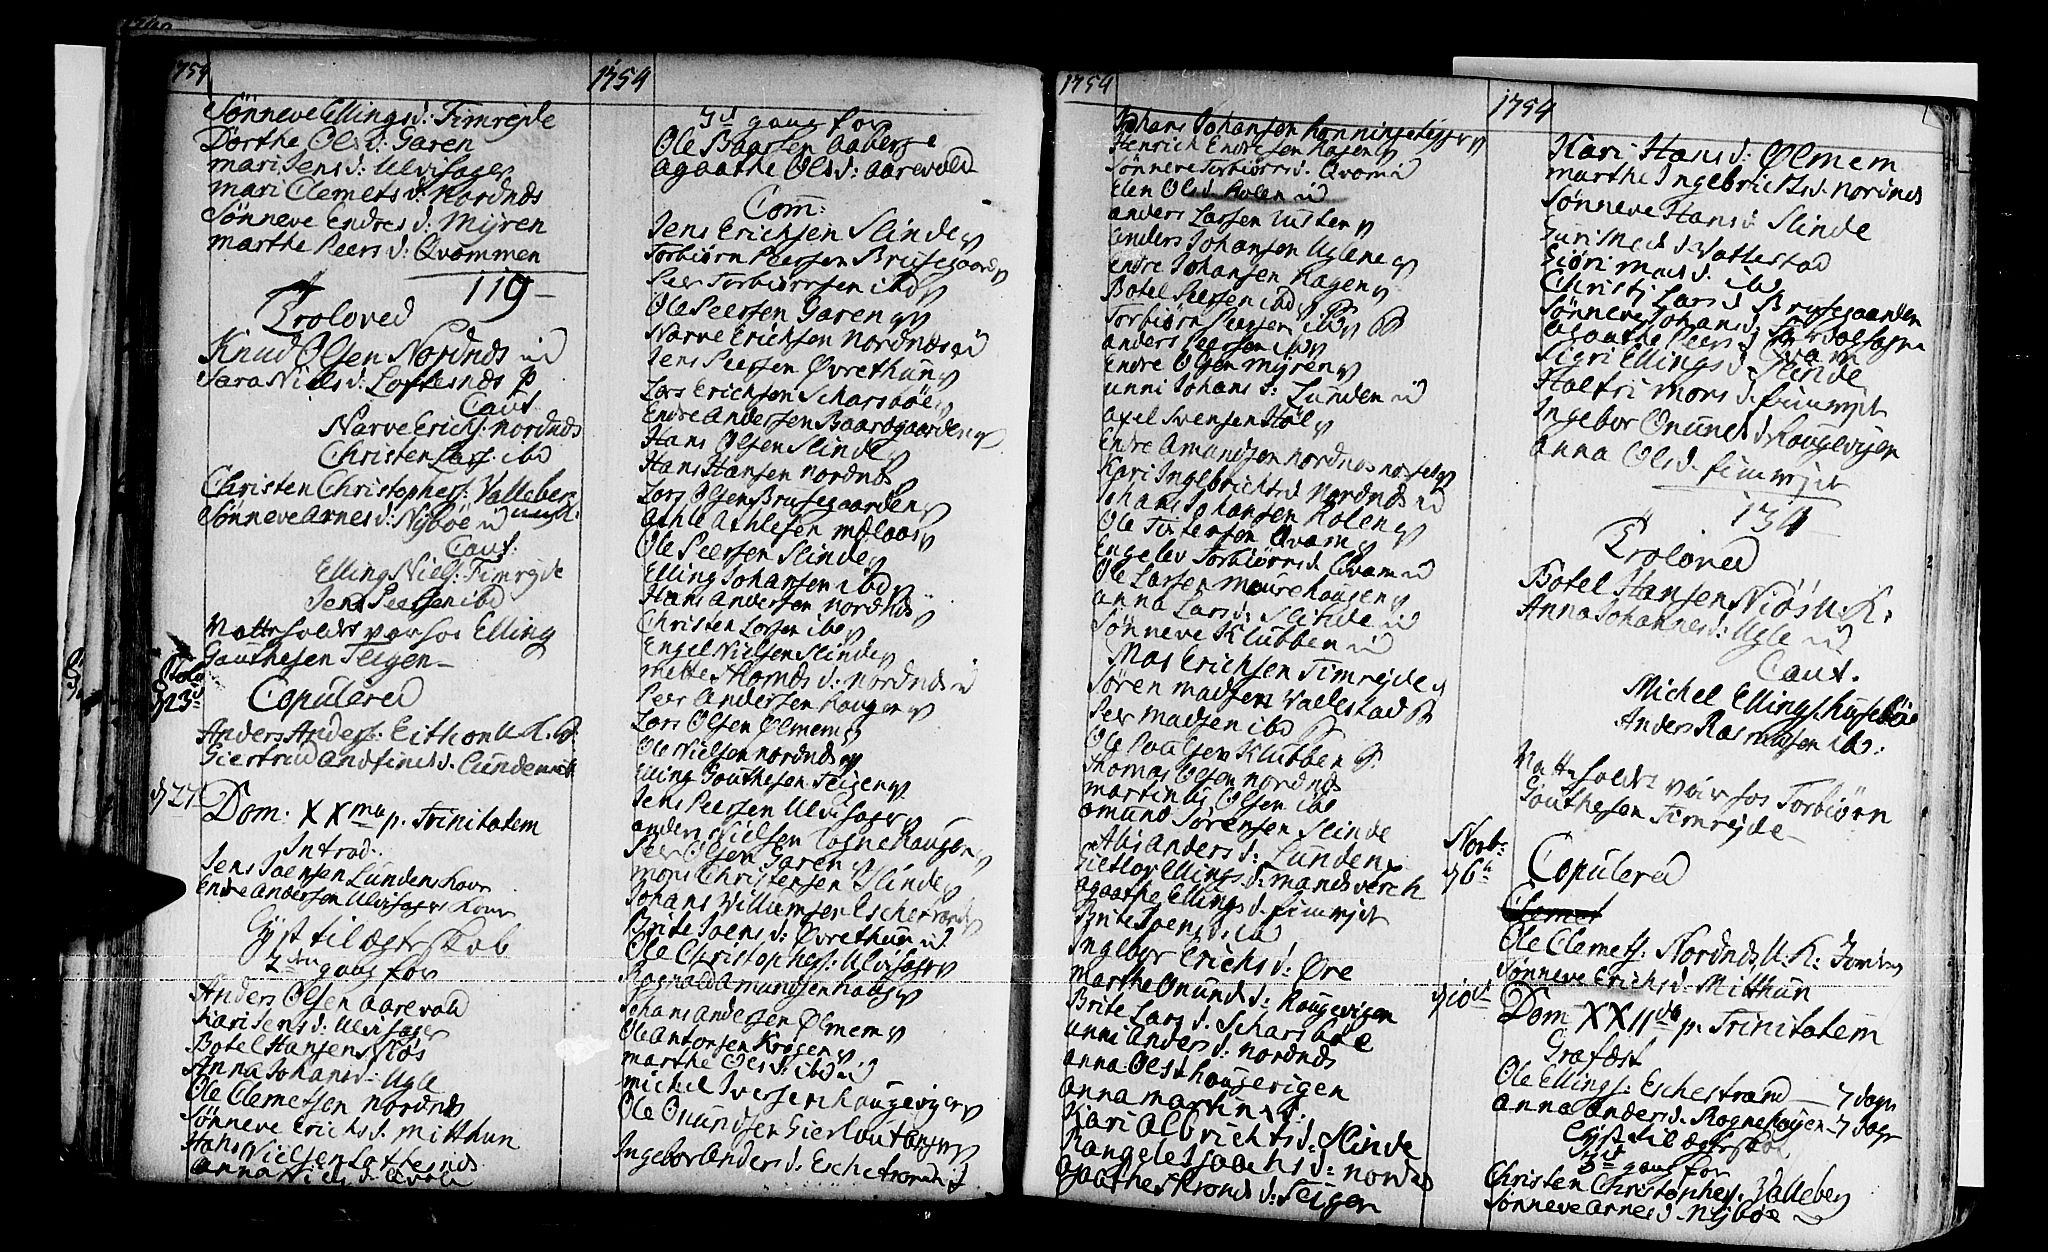 1754
Sønneve Ellings d: Timrejde
Dorthe Ols d: Garen
mari Jens d: Ulvisager
mari Clemets d: Nordnds
Sønneve Endres d: Myren
marthe Peers d: Qvammen
119
Troloved
Knud Olsen Nordnds
Sara Niels d: Loftesnds
Caut
Narve Erichs: nordnds
Christen Lars: ibd
Christen Christophers: Valleberg
Sønneve Arnes d: Nÿbøe
Caut:
Elling Niels: Timrejde
Jens Peersen ibd
Elling
Gouthesen Teigen
d 23
Copulered
Anders Anders: Eithon
Giertrud Andfinds d. Lunden
d 27
Dom. XX ma p. Trinitatem
Introd.
Jens Joensen Lundens Kone
Endre Andersen Ulvisagers Kone
Lÿst til Ægteskab
gang for
Anders Olsen Aarevold
Kari Jens d: Ulvisager
Botel Hansen Niøs
Anna Johans d: Ugle
Ole Clemetsen Nordnds
Sønneve Erichs d: Mitthun
Hans Nielsen Loftesnds
Anna Niels d. Qvale
1754
3d gang for
Ole Baarsen Aaberge
Agaathe Ols d: Aarevold
Com:
Jens Erichsen Slinde
Torbiørn Peersen Brusegaard
Peer Torbiørnsen ibd
Ole Peersen Garen
Narve Erichsen Nordnds
Jens Peersen Øvrethun
Lars Erichsen Scharsbøe
Endre Andersen Baardgaarden
Hans Olsen Slinde
Hans Hansen nordnds
Lars Olsen Brusegaarden
Athle Athlesen
Ole Peersen Slinde
Elling Johansen ibd
Hans Andersen nordnds
Christen Larsen ibd
Engel Nielsen Slinde
mette Thomds d: nordnds
Peer Andersen Haugen
Lars Olsen Ølmem
Ole Nielsen nordnds
Elling Gouthesen Teigen
Jens Peersen Ulvisager
anders Nielsen Rognehaugen
Peer Olsen Garen
mons Christensen Slinde
Johans Willumsen Eschestrand
Brite Joens d: Øvrethun
Ole Christophers: Ulvisager
Rognald Amundsen Haug
Johans Andersen Ølmem
Ole Antonsen Krogen
marthe Ols d: ibd
michel Iversen Haugevigen
Ole Onundsen Gierloutangen
Ingebor Anders d. Eschestrand
1754
Johans Johansen Rønningsteigen
Henrich Endresen Hagen
Sønneve Torbiørns d. Qvam
Elen Ols d Holen
anders Larsen
anders Johansen Uglene
Endre Johansen Hagen
Botel Peersen ibd
Torbiørn Peersen ibd
anders Peersen ibd
Endre Olsen Myren
unni Johans d: Lunden
axel Svensen Høl
Endre Amundsen nordnds
Kari Ingebrichts d Nordnds
Johans Johansen Holen
Ole Qvam
Engelev Torbiørns d Qvam
Ole Larsen mourehaugen
anna Lars d. Slinde
Sønneve Klubben
Mas Erichsen Timrejde
Søren madsen Vallestad
Peer Madsen ibd
Ole Poulsen Klubben
Thomas Olsen nordnds
martinus Olsen ibd
Omund Sørensen Slinde
Alis Anders d: Lunden
Giethov Ellings d: mandsverch
agaathe Ellings d. fimrejt
Brite Joens d: ibd
Ingebor Erichs d: Øre
marthe Onunds d: Haugevigen
Brite Lars d. Scharsbøe
unni Anders d: nordnds
anna Ols Haugevigen
anna martins d:
Kari Olbrichts d: Slinde
Rangele Joachs d: nordnds
agaathe Tronds d: Teigen
1754
Kari Hans d: Ølmem
marthe Ingebrichts d. nordnds
Sønneve Hans d Slinde
Guri d. Vallestad
Giøri mads d. ibd
Christj Lars d Brusegaarden
Sønneve Johans d:
Agaathe Peers d Qvam
Sigri Ellings d. Slinde
Holtri Mons d. fimrejt
Ingebor Onunds d Haugevigen
anna Ols d. fimrejt
134
Troloved
Botel Hansen Niøs U: K:
Anna Johannes d: Ugle
Caut.
Michel Ellings: Husebøe
Anders Rasmusen ibd:
Torbiørn
Gouthesen Timrejde
Novbr
d 6te
Copulered
Clemet
Ole Clemets: Nordnds U: K:
Sønneve Erichs d: Mitthun
d 10d
Dom XXII da p. Trinitatem
Græfæst
Ole Ellings: Eschestrand — 7 dage
Anna Anders d. Rognehaugen — 7 dage
Lÿst til Ægteskab
3d gang for
Christen Christophers. Valleberg
Sønneve Arnes d. Nybøe